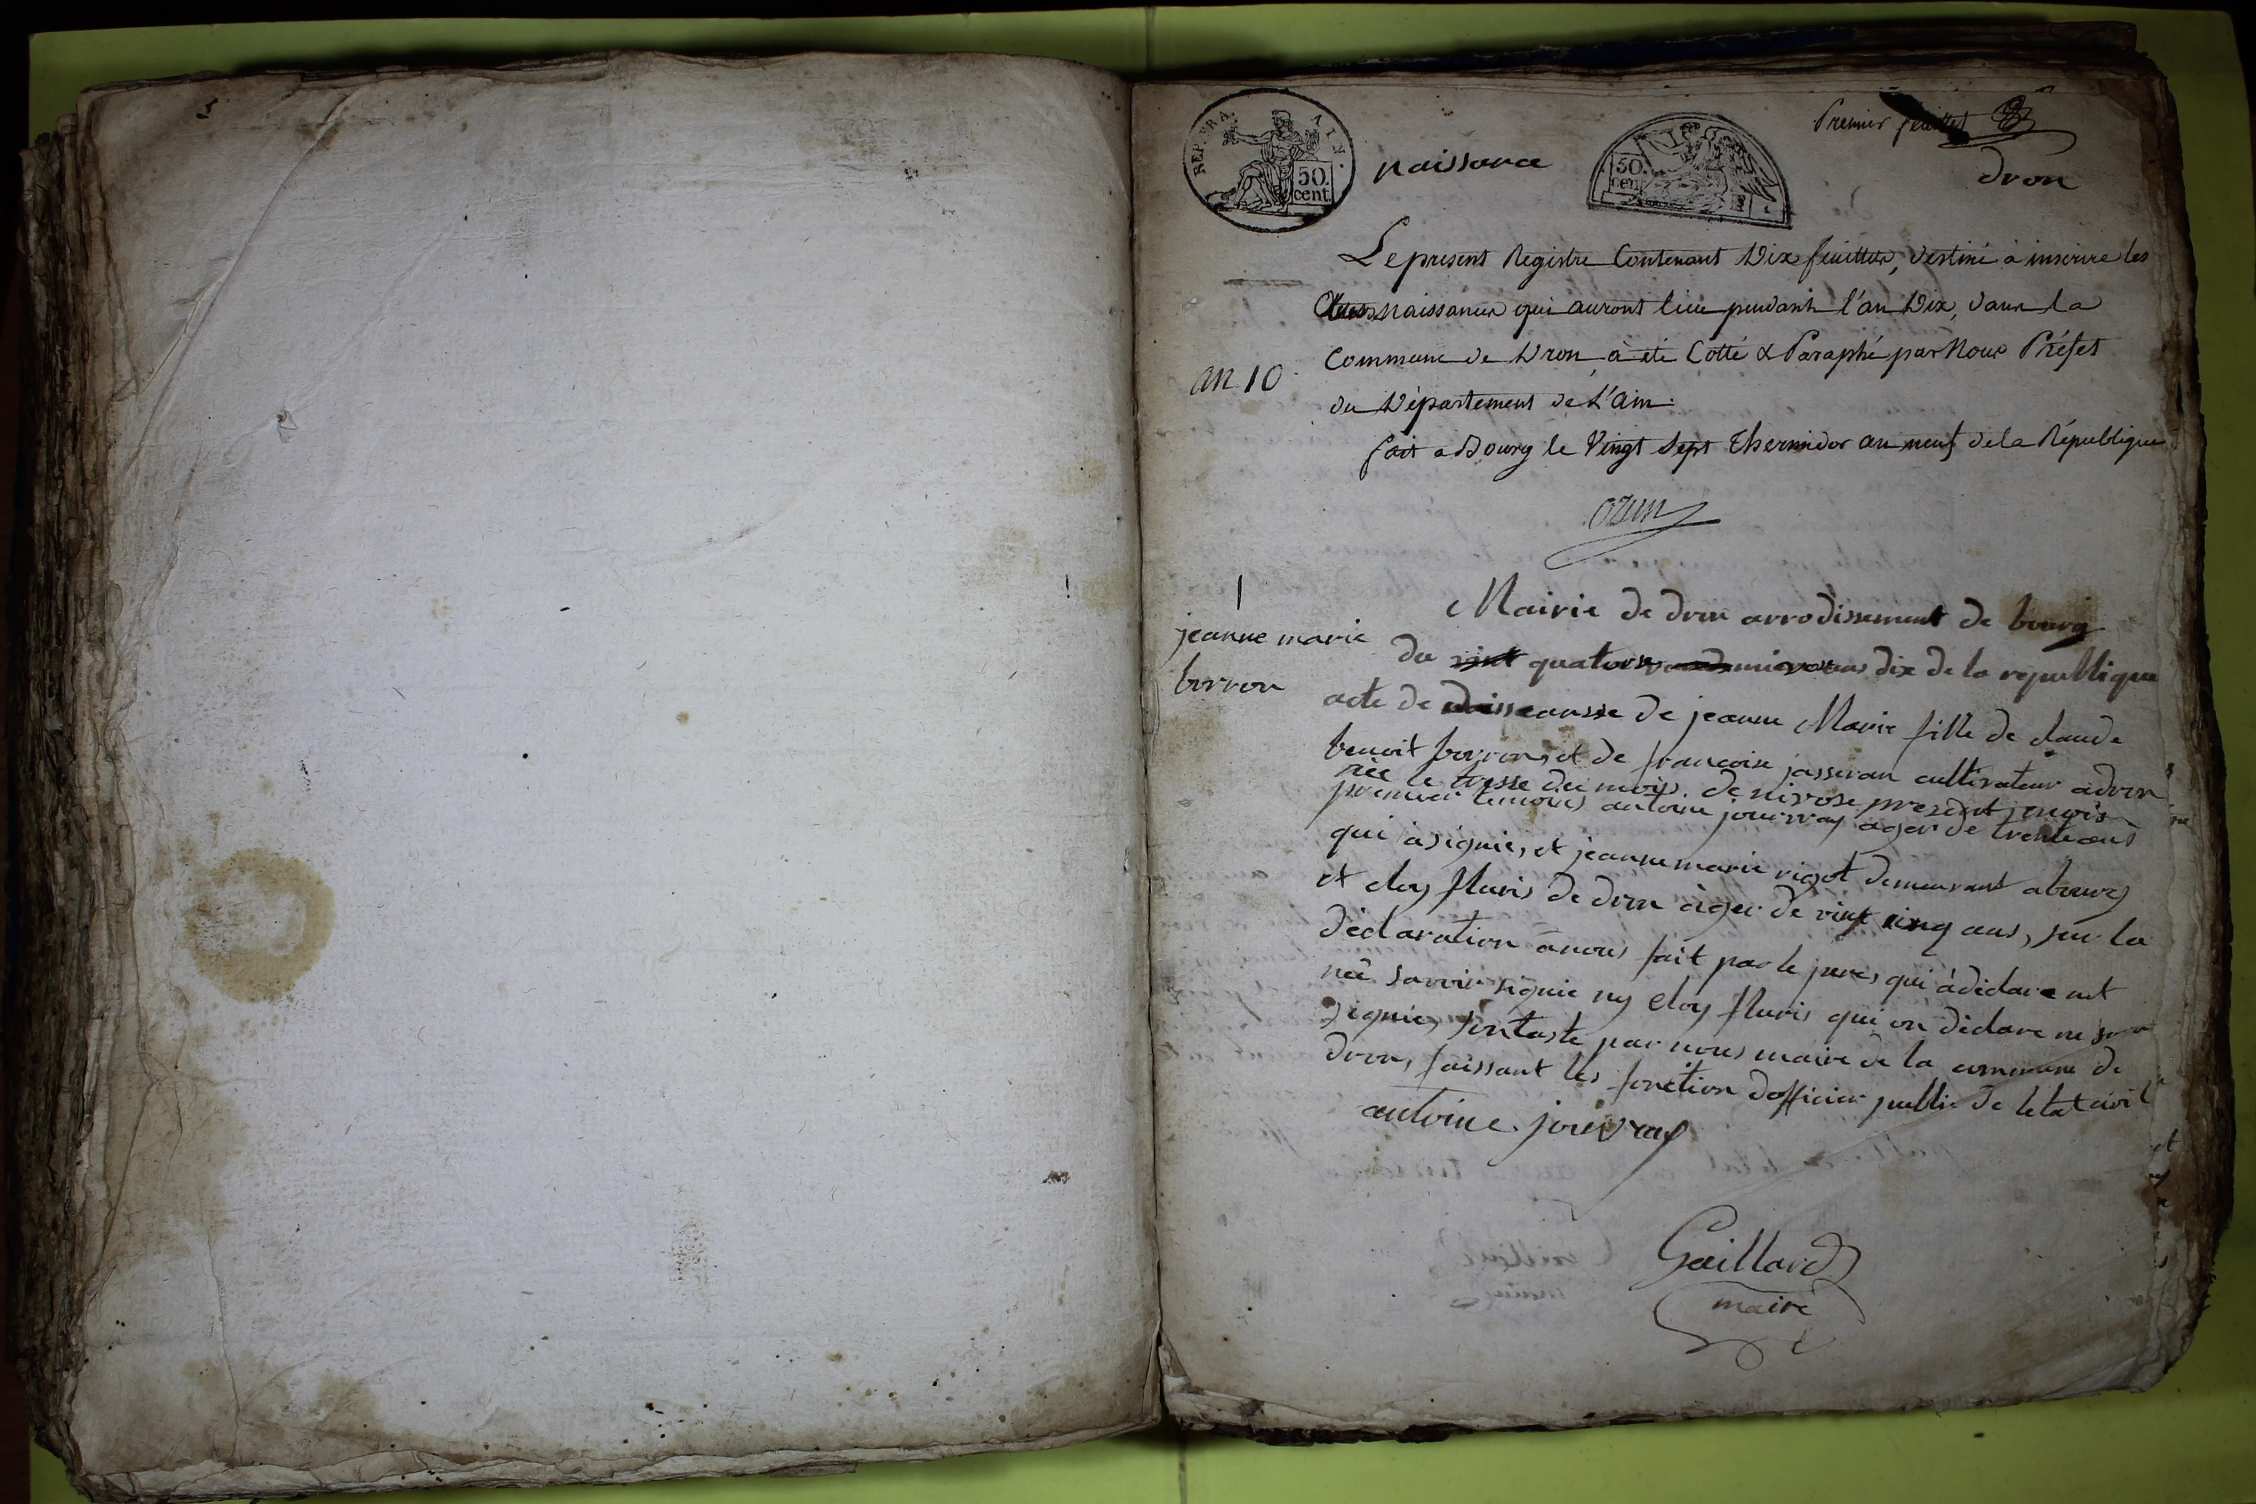 REP. FRA. AIN.
50. cent.
naissance
50. cent
Premier feuillet
dron
Le present Registre Contenant Dix feuilles, destiné à inscrire les
naissances qui auront lieu pendant l'an Dix, dans la
Commune de Dron, à été Cotté & Paraphé par Nous Préfet
du Département de L'ain.
fait a Bourg le Vingt Sept Thermidor an neuf de la République
ozun
an 10
1
jeanne marie
borron
Mairie de dron arrodissement de bourg
du quatorse nivose ans dix de la republique
acte de naisseansse de jeanne Marie fille de claude
benoit borron, et de francoise jasseran cultivateur a dron
née le tresse du mois de nivose present mois
premier temoins antoine jouvray ager de trente ans
qui à signie, et jeanne marie rigot demeurant a bourg
et eloy fluris de dron àger de vint cinq ans, sur la
déclaration à nous fait par le pere, qui à déclare
savoir signie ny eloy fluris qui on déclare ne
signie, par nous maire de la commune de
dron, faissant les fonction dofficier public de letat civil
antoine jouvray
Gaillard
maire